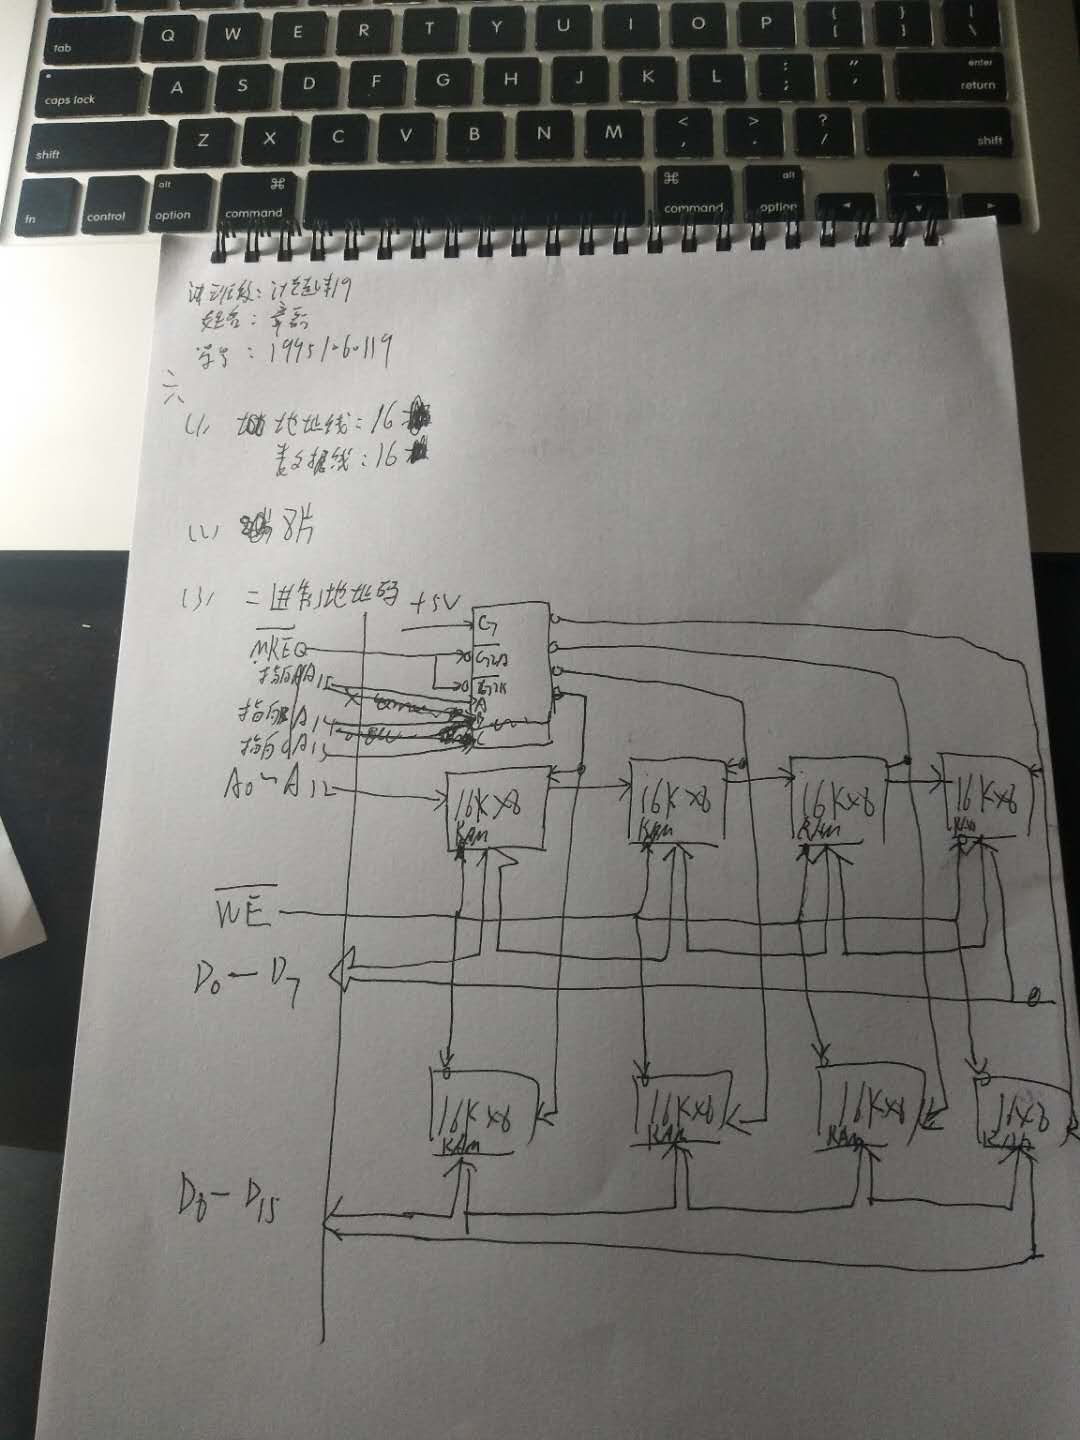 tab Q W E R T Y U I O P { [ } ] | \
caps lock A S D F G H J K L : ; " , enter return
shift Z X C V B N M < , > . ? / shift
fn control alt option ⌘ command ⌘ command alt option
姓名：
学号：19951060119
六
(1) 地址线：16
数据线：16
8片
(3) 二进制地址码 +5V
G
MREQ G2A
指向A A15 A
指向B A14 B
指向C A13 C
A0~A12
16K×8 RAM 16K×8 RAM 16K×8 RAM 16K×8 RAM
WE
D0—D7
16K×8 RAM 16K×8 RAM 16K×8 RAM 16×8 RAM
D8—D15